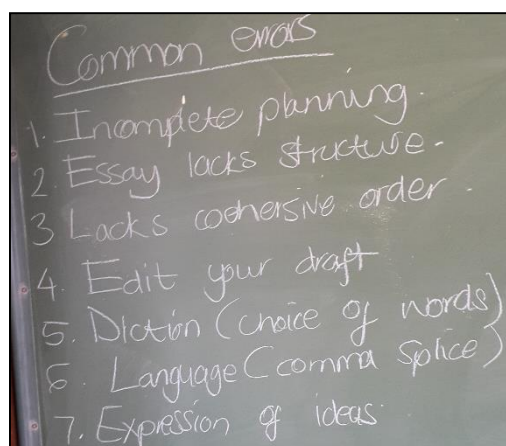 Common errors
1. Incomplete planning.
2. Essay lacks structure.
3 Lacks cohersive order.
4. Edit your draft
5. Diction (choice of words)
6. Language (comma splice)
7. Expression of ideas.